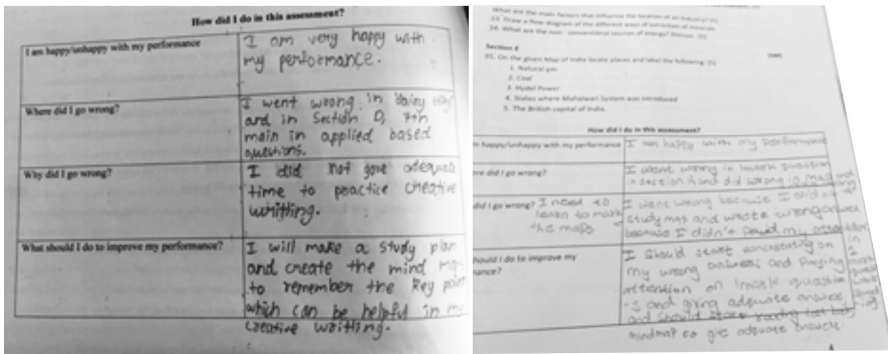 How did I do in this assessment?
I am happy/unhappy with my performance
I am very happy with
my performance.
Where did I go wrong?
I went wrong in dairy
and in Section D, 7th
main in applied based
questions.
Why did I go wrong?
I did not give adequate
time to practice creative
whitting.
What should I do to improve my performance?
I will make a study plan
and create the mind map
to remember the key point
which can be helpful in my
creative writting.
What are the main factors that influence the location of an industry? (5)
33. Draw a flow diagram of the different ways of extraction of minerals.
34. What are the non - conventional sources of energy? Discuss. (5)
Section E
35. On the given Map of India locate places and label the following: (5)
1. Natural gas
2. Coal
3. Hydel Power
4. States where Mahalwari System was introduced
5. The British capital of India.
How did I do in this assessment?
happy/unhappy with my performance
I am happy with my performance
did I go wrong?
I went wrong in 1mark question
in section A and did wrong in map
did I go wrong?
I need to
learn to mark
the maps
I went wrong because I didn't
study map and wrote wrong answer
because I didn't my attention
should I do to improve my
I should start on
my wrong answers and paying
attention on 1mark question
-s and giving adequate answer
and should start
mindmap to give adequate answer.
4